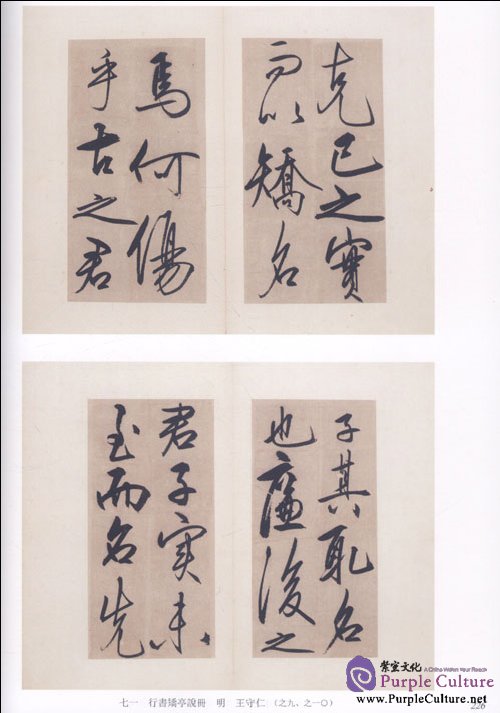 克己之實
而以矯名
焉何傷
乎古之君
子其取名
也廉後之
君子實未
至而名先
七一 行書矯亭說冊 明 王守仁 (之九、之一〇)
226
紫宣文化 A China Within Your Reach
Purple Culture
www.PurpleCulture.net